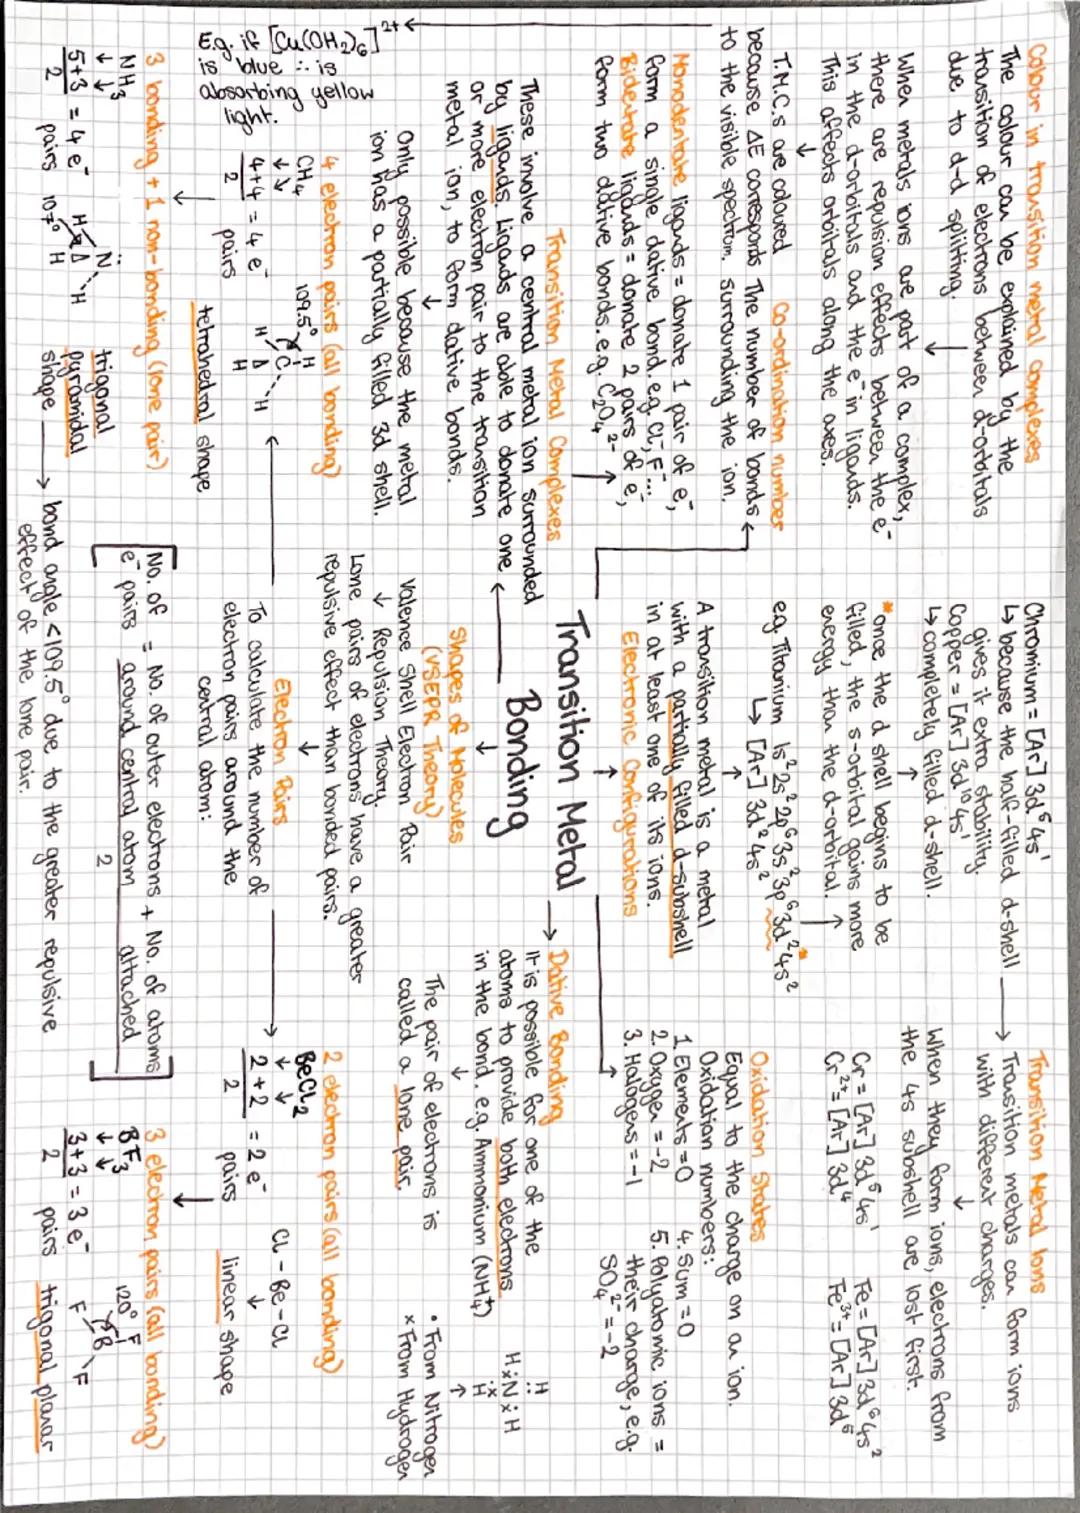 Colour in transition metal complexes
The colour can be explained by the
transition of electrons between d-orbitals
due to d-d splitting.
↓
When metals ions are part of a complex,
there are repulsion effects between the e⁻
in the d-orbitals and the e⁻ in ligands.
This affects orbitals along the axes.
↓
T.M.C.s are coloured
because ΔE corresponds
to the visible spectrum.
E.g. if [Cu(OH₂)₆]²⁺
is blue ∴ is
absorbing yellow
light.
Co-ordination number
The number of bonds
surrounding the ion.
Monodentate ligands = donate 1 pair of e⁻,
form a single dative bond. e.g. Cl⁻, F⁻...
Bidentate ligands = donate 2 pairs of e⁻,
form two dative bonds. e.g. C₂O₄²⁻
Transition Metal Complexes
These involve a central metal ion surrounded
by ligands. Ligands are able to donate one
or more electron pair to the transition
metal ion, to form dative bonds.
↓
Only possible because the metal
ion has a partially filled 3d shell.
Chromium = [Ar] 3d⁵4s¹
↳ because the half-filled d-shell
gives it extra stability.
Copper = [Ar] 3d¹⁰4s¹
↳ completely filled d-shell.
*once the d shell begins to be
filled, the s-orbital gains more
energy than the d-orbital.
e.g. Titanium 1s²2s²2p⁶3s²3p⁶3d²4s²*
↳ [Ar] 3d²4s²
A transition metal is a metal
with a partially filled d-subshell
in at least one of its ions.
Electronic Configurations
Transition Metal
Bonding
Transition Metal Ions
→ Transition metals can form ions
with different charges.
↓
When they form ions, electrons from
the 4s subshell are lost first.
Cr = [Ar] 3d⁵4s¹ Fe = [Ar] 3d⁶4s²
Cr²⁺ = [Ar] 3d⁴ Fe³⁺ = [Ar] 3d⁵
Oxidation States
Equal to the charge on an ion.
Oxidation numbers:
1. Elements = 0
2. Oxygen = -2
3. Halogens = -1
4. Sum = 0
5. Polyatomic ions =
their charge, e.g.
SO₄²⁻ = -2
Dative Bonding
It is possible for one of the
atoms to provide both electrons
in the bond. e.g. Ammonium (NH₄⁺)
↓
The pair of electrons is
called a lone pair.
H
H N H
H
• From Nitrogen
x From Hydrogen
Shapes of Molecules
(VSEPR Theory)
Valence Shell Electron Pair
↓ Repulsion Theory.
Lone pairs of electrons have a greater
repulsive effect than bonded pairs.
↓
Electron Pairs
To calculate the number of
electron pairs around the
central atom:
[No. of e⁻ pairs = No. of outer electrons around central atom + No. of atoms attached / 2]
4 electron pairs (all bonding)
CH₄
↓ ↘
4+4/2 = 4 e⁻ pairs
109.5° H C H H H
tetrahedral shape
3 bonding + 1 non-bonding (lone pair)
NH₃
↓ ↓
5+3/2 = 4 e⁻ pairs
107° N H H H
trigonal
pyramidal
shape
→ bond angle <109.5° due to the greater repulsive
effect of the lone pair.
2 electron pairs (all bonding)
BeCl₂
↓ ↓
2+2/2 = 2 e⁻ pairs
Cl - Be - Cl
↓
linear shape
3 electron pairs (all bonding)
BF₃
↓ ↓
3+3/2 = 3 e⁻ pairs
120° F B F F
trigonal planar